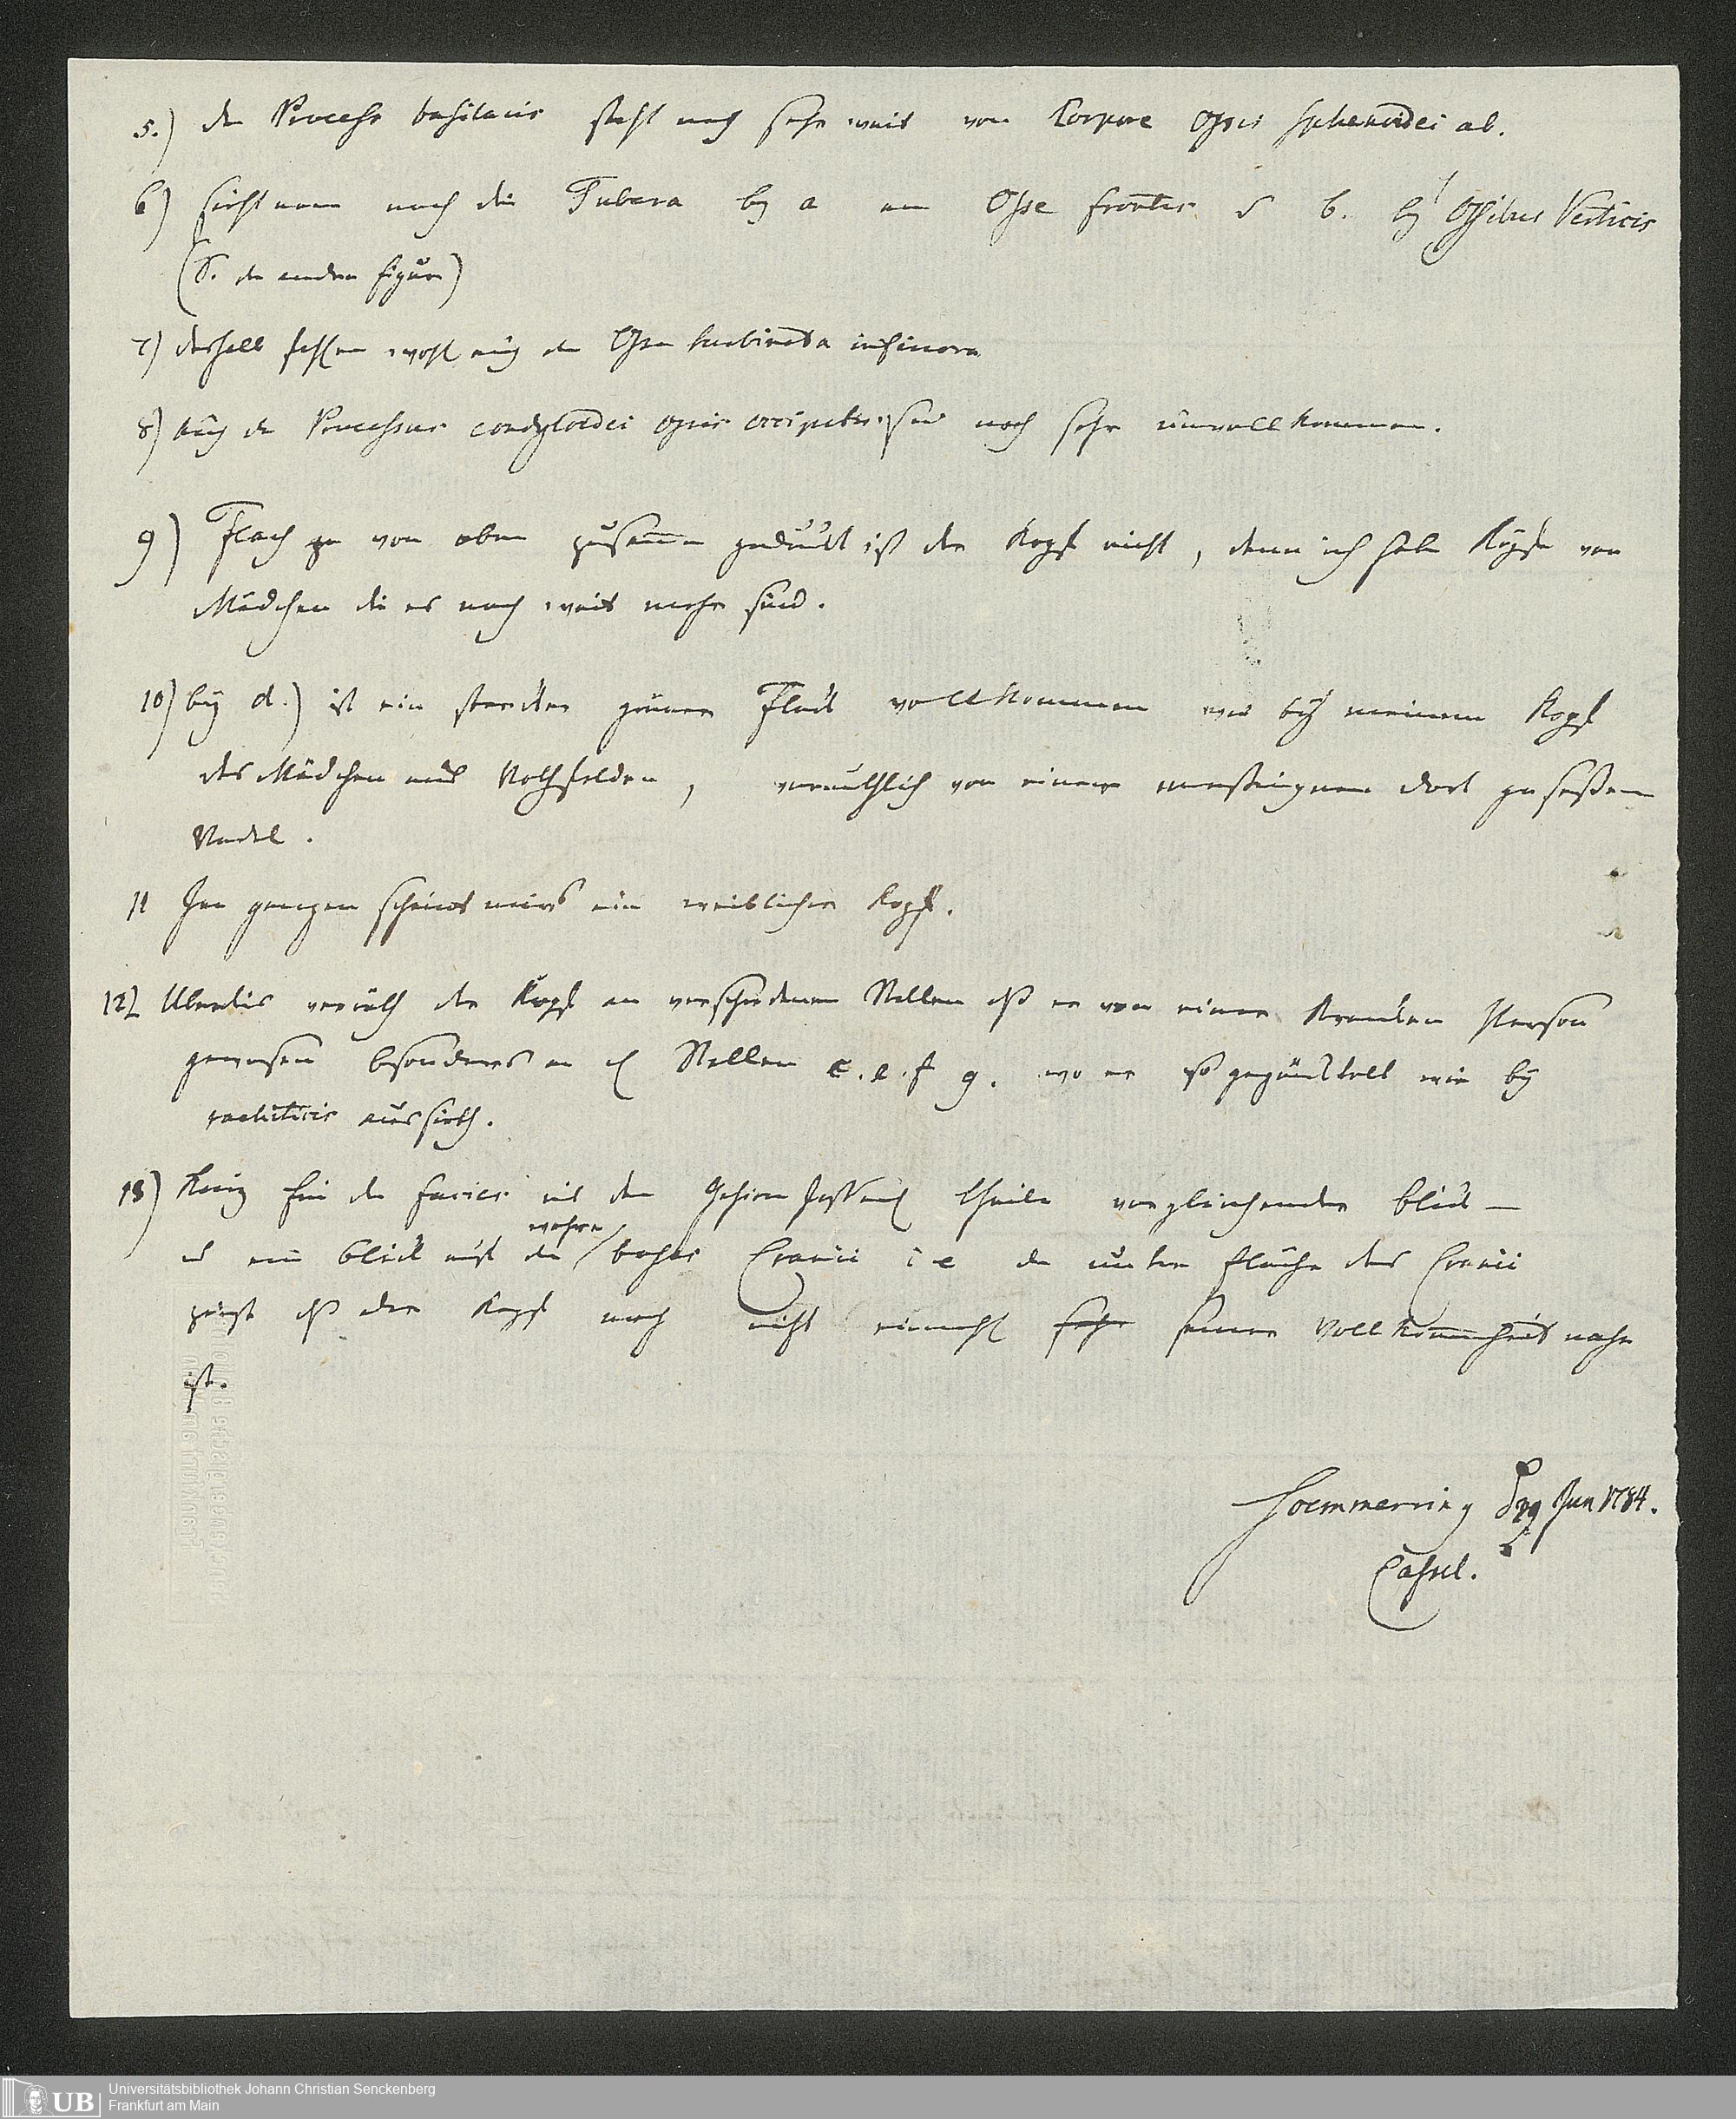 5.) der Process basilaris steht noch sehr weit vom Corpore Ossis sphenoidei ab.
6) sieht man noch die Tubera bey a am Osse frontis u b. bey Ossibus Verticis
(S. die andere figur)
7) deshalb fehlen wohl auch die Ossa turbinata inferiora
8) auch die Processus condyloidei ossis occipitis sind noch sehr unvollkommen.
9) Flach von oben zusammen gedrückt ist der Kopf nicht, denn ich habe Köpfe von
Mädchen die es noch weit mehr sind.
10) bey d.) ist ein starcker grüner Fleck vollkommen wie bey meinem Kopf
des Mädchen aus Rothfelden, vermuthlich von einer messingnen dort geseßenen
Nadel.
11 Im ganzen scheint mirs ein weiblicher Kopf.
12) Uberdis verräth der Kopf an verschiedenen Stellen dß er von einer Krancken Person
gewesen besonders an Stellen c. e. f g. wo er so gepünktelt wie bey
rachiticis aussieht.
13) Kurz ein die facies mit dem Gehirn theile vergleichender blick —
u ein blick auf die
wahre
basis Cranii i e die untere fläche des Cranii
zeigt dß der Kopf noch nicht einmahl sehr seiner Vollkommenheit nahe
ist.
Soemmerring d 19 Jun 1784.
Cassel.
UB
Universitätsbibliothek Johann Christian Senckenberg
Frankfurt am Main